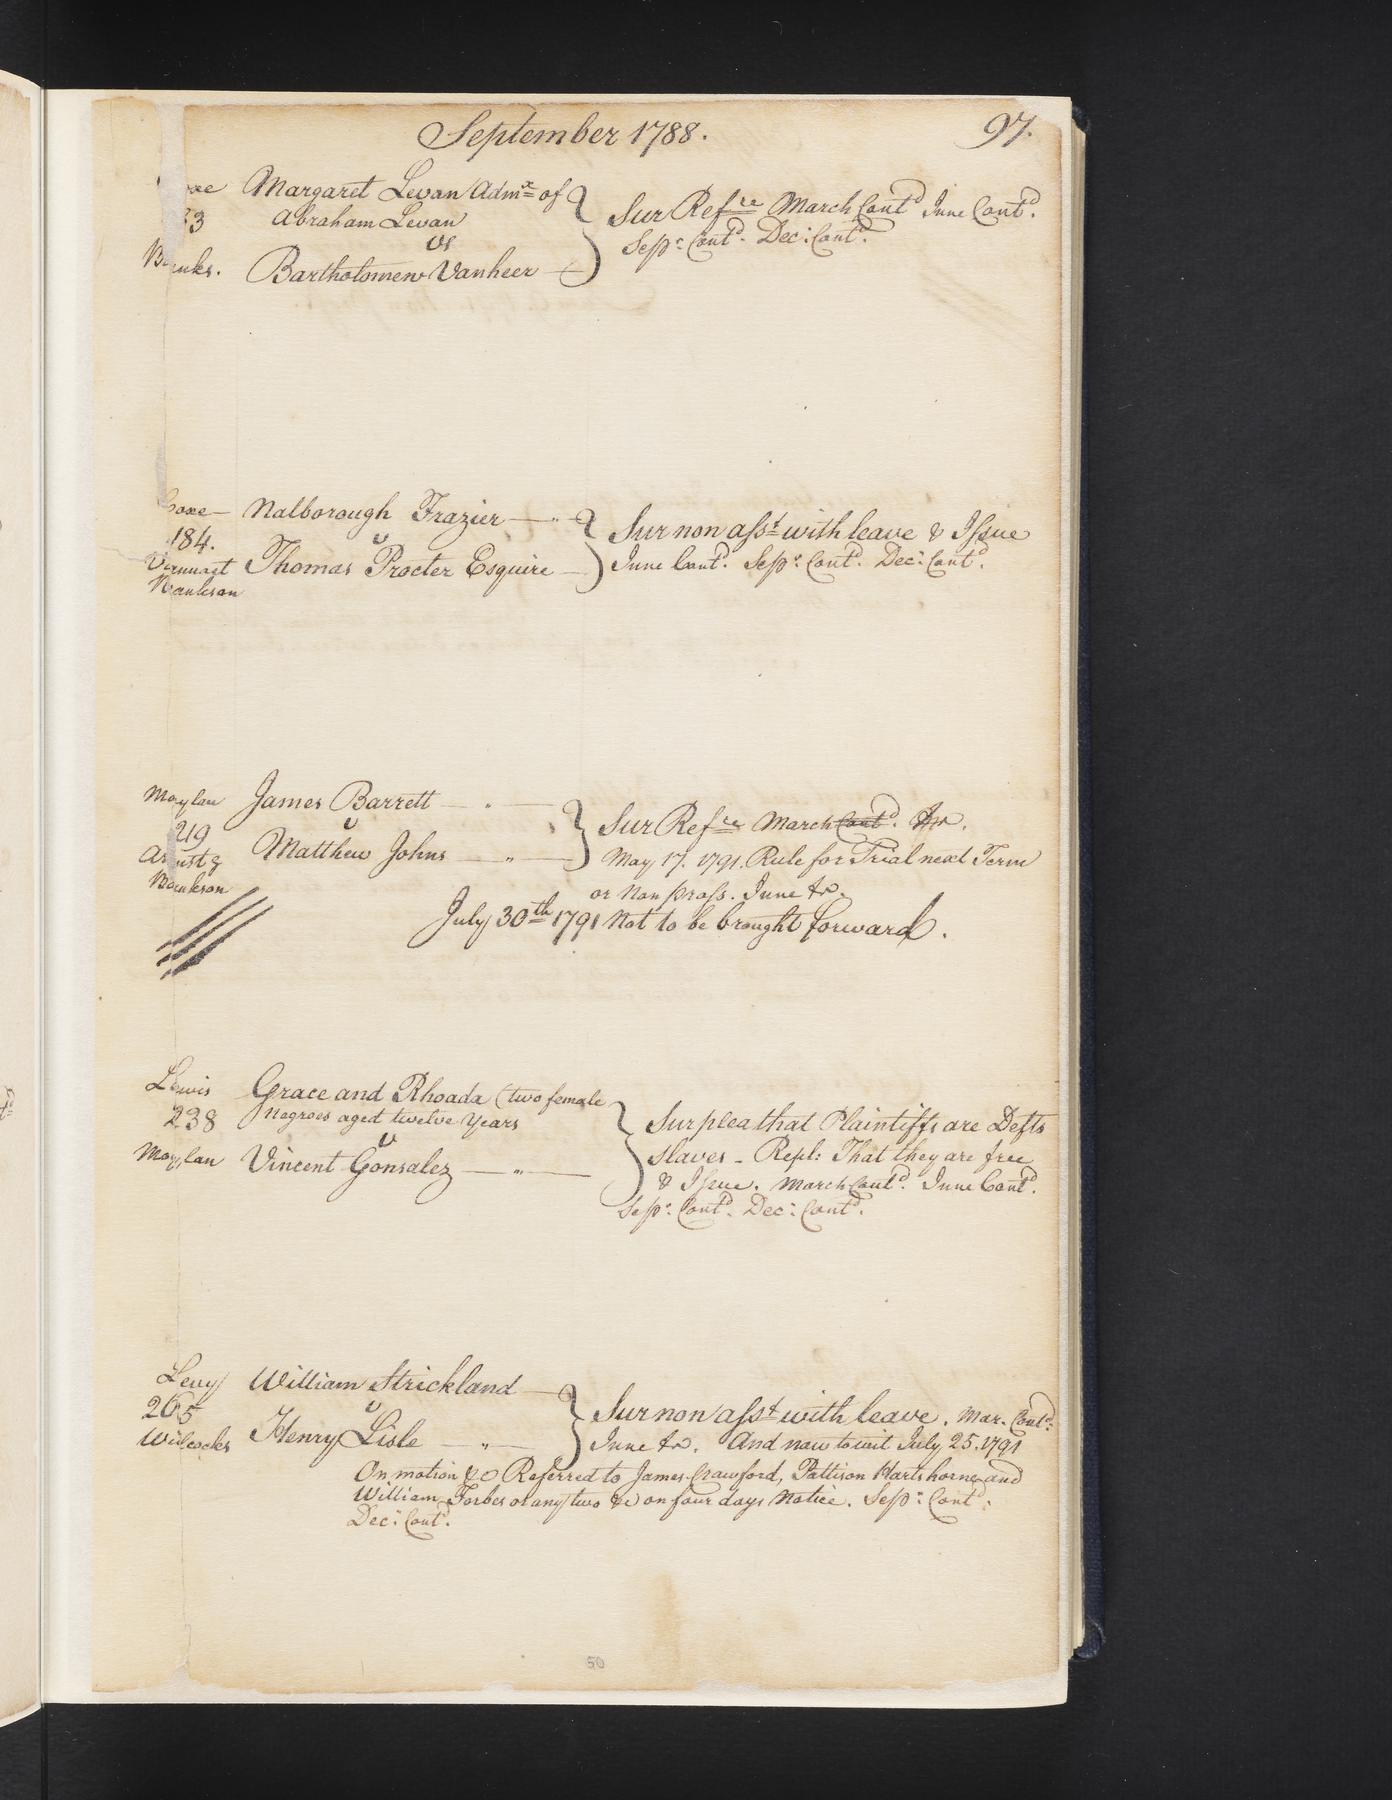 September 1788. 97.
Margaret Levan Admx of
Abraham Levan
vs
Bartholomew Vanheer
Sur Refce March Contd June Contd.
Sepr. Contd. Dec: Contd.
Coxe Nalborough Frazier
184. v
Thomas Procter Esquire
Bankson
Sur non asst with leave & Issue
June Contd. Sepr: Contd. Dec: Contd.
Moylan James Barrett
219 v
Matthew Johns
Bankson
Sur Refce March Contd. &c.
May 17. 1791. Rule for Trial next Term
or Non pross. June &c.
July 30th 1791 Not to be brought forward.
Lewis Grace and Rhoada (two female
238 Negroes aged twelve Years
v
Moylan Vincent Gonsalez
Sur plea that Plaintiffs are Defts
Slaves - Repl: That they are free
& Issue. March Contd. June Contd.
Sepr: Contd. Dec: Contd.
Levy William Strickland
265 v
Wilcocks Henry Lisle
Sur non asst with leave. Mar. Contd.
June &c. And now to wit July 25. 1791
On motion &c Referred to James Crawford, Pattison Hartshorne and
William Forbes or any two &c on four days Notice. Sepr: Contd.
Dec: Contd.
50